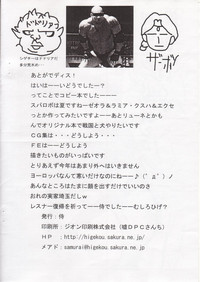 ドドリア
ザーボン
シゲキーはドドリアだ
あとがでディス!
はいはーーいどうでしたー?
ってことでコピー本でしたーーー
スパロボは夏ですねーゼオラ&ラミア・クスハ&エクセ
っとか作ってみたいですよーーあとリューネとかも
んでオリジナル本で戦国と犬やりたいです
CG集は・・・どうしよう・・・
FEは――どうしよう
描きたいものがいっぱいです
とりあえず今年はあまり外へはいきません
ヨーロッパなんて悪いだけなのにねーー♪(´д`)ノ
あんなところはたまに顔を出すだけでいいのさ
おれの実家埼玉だしw
レスナー復帰を祈って――侍でした――むしろひげ?
発行:侍
印刷所:ジオン印刷株式会社(嘘DPCさんち)
HP : http://higekou.sakura.ne.jp/
メアド:samurai@higekou.sakura.ne.jp/